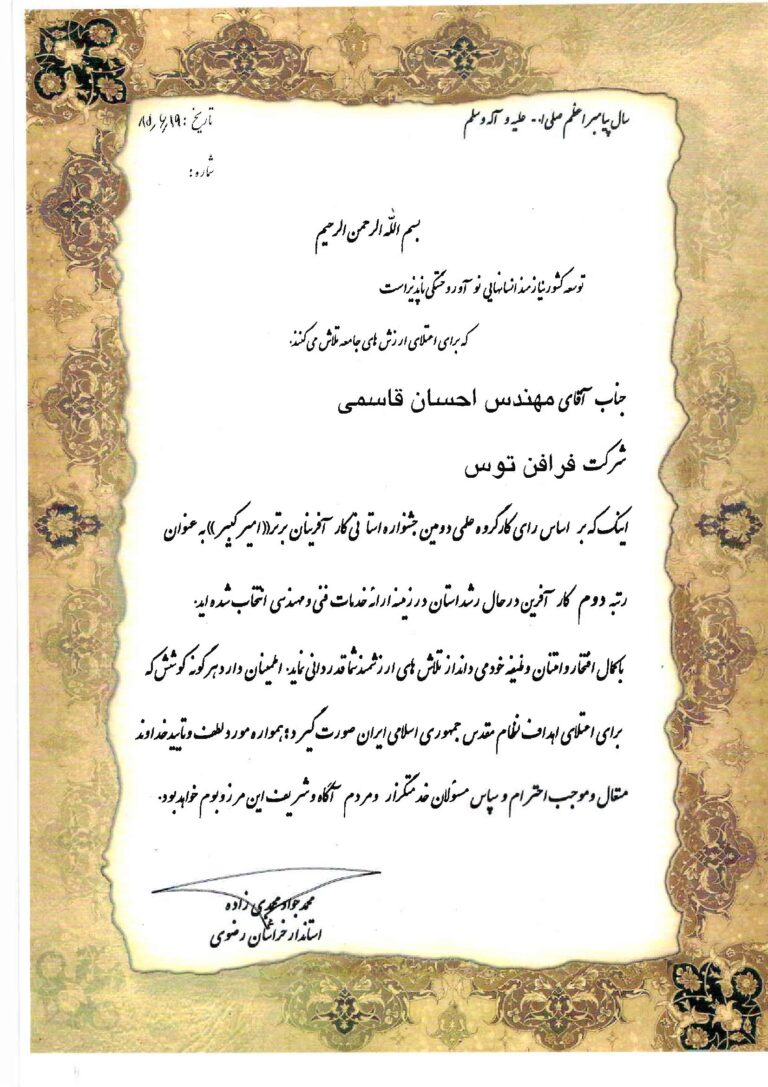 سال پیامبر اعظم صلی ا... علیه و آله وسلم
تاریخ : ۸۵/۶/۱۹
شماره :
بسم الله الرحمن الرحیم
توسعه کشور نیازمند انسانهایی نوآور و خستگی ناپذیر است
که برای اعتلای ارزش های جامعه تلاش می کنند.
جناب آقای مهندس احسان قاسمی
شرکت فرافن توس
اینک که بر اساس رای کارگروه علمی دومین جشنواره استانی کار آفرینان برتر((امیر کبیر)) به عنوان
رتبه دوم کار آفرین در حال رشد استان در زمینه ارائه خدمات فنی و مهندسی انتخاب شده اید.
با کمال افتخار و امتنان وظیفه خود می داند از تلاش های ارزشمند شما قدردانی نماید. اطمینان دارد هرگونه کوشش که
برای اعتلای اهداف نظام مقدس جمهوری اسلامی ایران صورت گیرد ؛ همواره مورد لطف و تایید خداوند
متعال و موجب احترام و سپاس مسئولان خدمتگزار و مردم آگاه و شریف این مرز و بوم خواهد بود.
محمد جواد محمدی زاده
استاندار خراسان رضوی